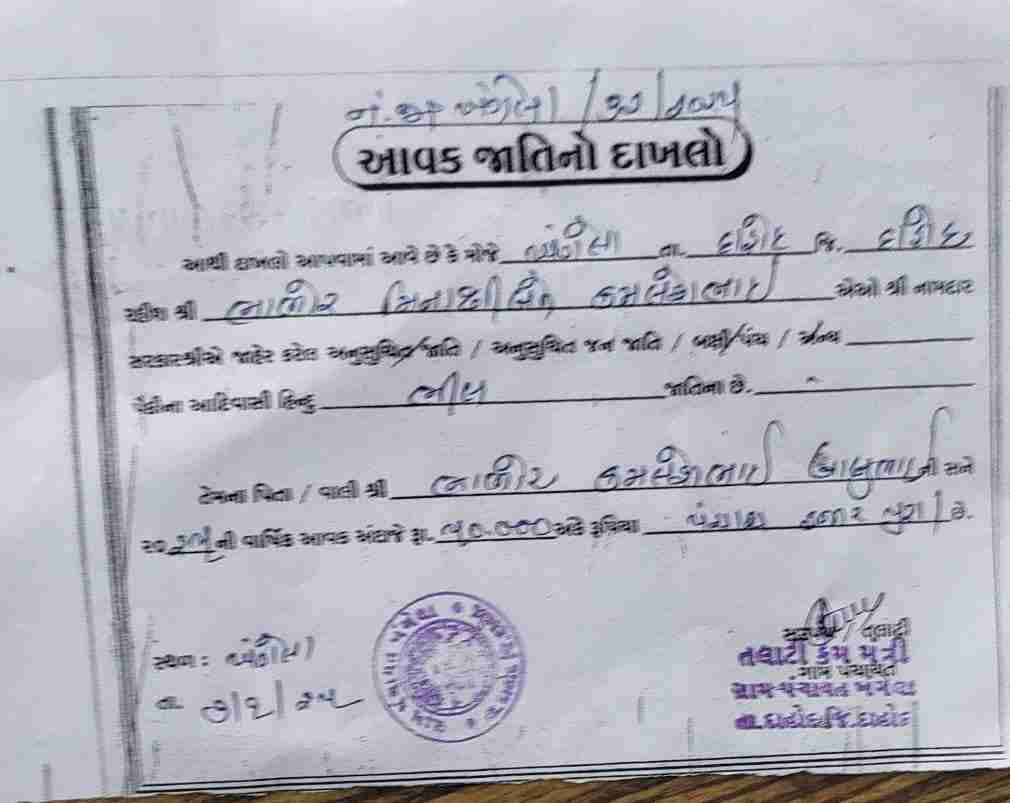 આવક જાતિનો દાખલો
આથી દાખલો આપવામાં આવે છે કે મોજે તા. દાહોદ જિ. દાહોદ
રહીશ શ્રી ભાભોર કમલેશભાઈ એઓ શ્રી નામદાર
સરકારશ્રીએ જાહેર કરેલ અનુસુચિત જાતિ / અનુસુચિત જન જાતિ / બક્ષી પંચ / અન્ય
પૈકીના આદિવાસી હિન્દુ ભીલ જાતિના છે.
તેમના પિતા / વાલી શ્રી ભાભોર કમલેશભાઈ બાબુભાઈ ની સને
૨૦૨૫ ની વાર્ષિક આવક અંદાજે રૂા. ૫૦.૦૦૦ અંકે રૂપિયા પચાસ હજાર પુરા છે.
સ્થળ :
તા.
સરપંચ / તલાટી
તલાટી કમ મંત્રી
ગ્રામ પંચાયત
ગ્રામ પંચાયત
તા.દાહોદ જિ.દાહોદ